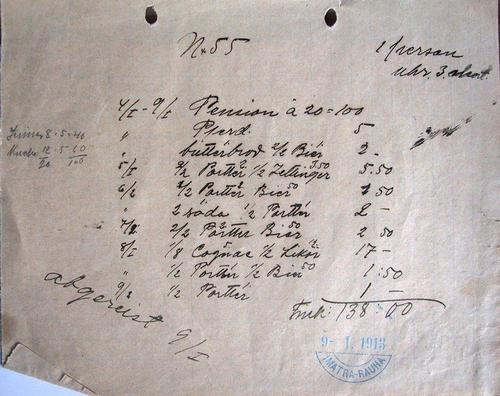 No 55
1 person
uhr. 3.
4/I - 9/I Pension à 20 = 100
" Pferd 5
" butterbrod 2/2 Bier 2 -
5/I 2/2 Portter 1/2 Zeltinger 3.50 5.50
6/I 1/2 Portter Bier 50 1 50
" 2 soda 1/2 Porttér 2 -
7/I 2/2 Portter Bier 50 2 50
8/I 1/8 Cognac 1/2 Likör 17 -
" 1/2 Porttér 1/2 Bier 50 1:50
9/I 1/2 Porttér 1 -
Fmk: 138:00
Zimmer 8 · 5 = 40
Kuche 12 · 5 = 60
20 100
abgereist
9/I
9 - I. 1913
IMATRA-RAUHA